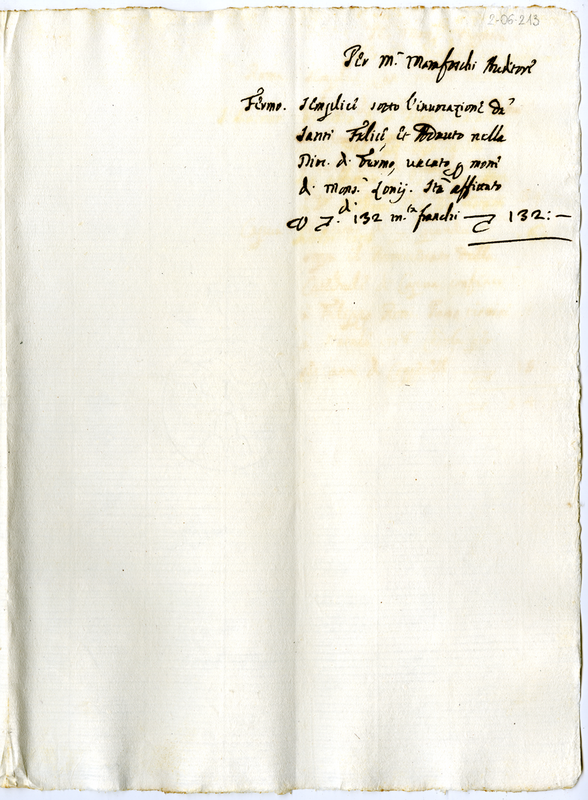 2-06-213
Per M.r Manfreschi Auditore
Fermo. Semplice sotto l'inuocazione da'
Santi Felice, et Adauto nella
Dioc. di Fermo, uacato p morte
di Mons.r Stà affittato
132 m.ta franchi 132:—